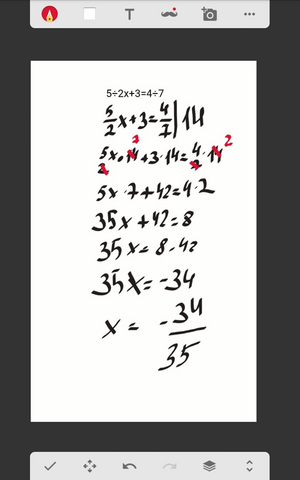 T
5÷2x+3=4÷7
5/2 x+3=4/7 | 14
5x/2 · 14 7 + 3 · 14 = 4/7 · 14 2
5x · 7 + 42 = 4 · 2
35x + 42 = 8
35x = 8 - 42
35x = -34
x = -34/35